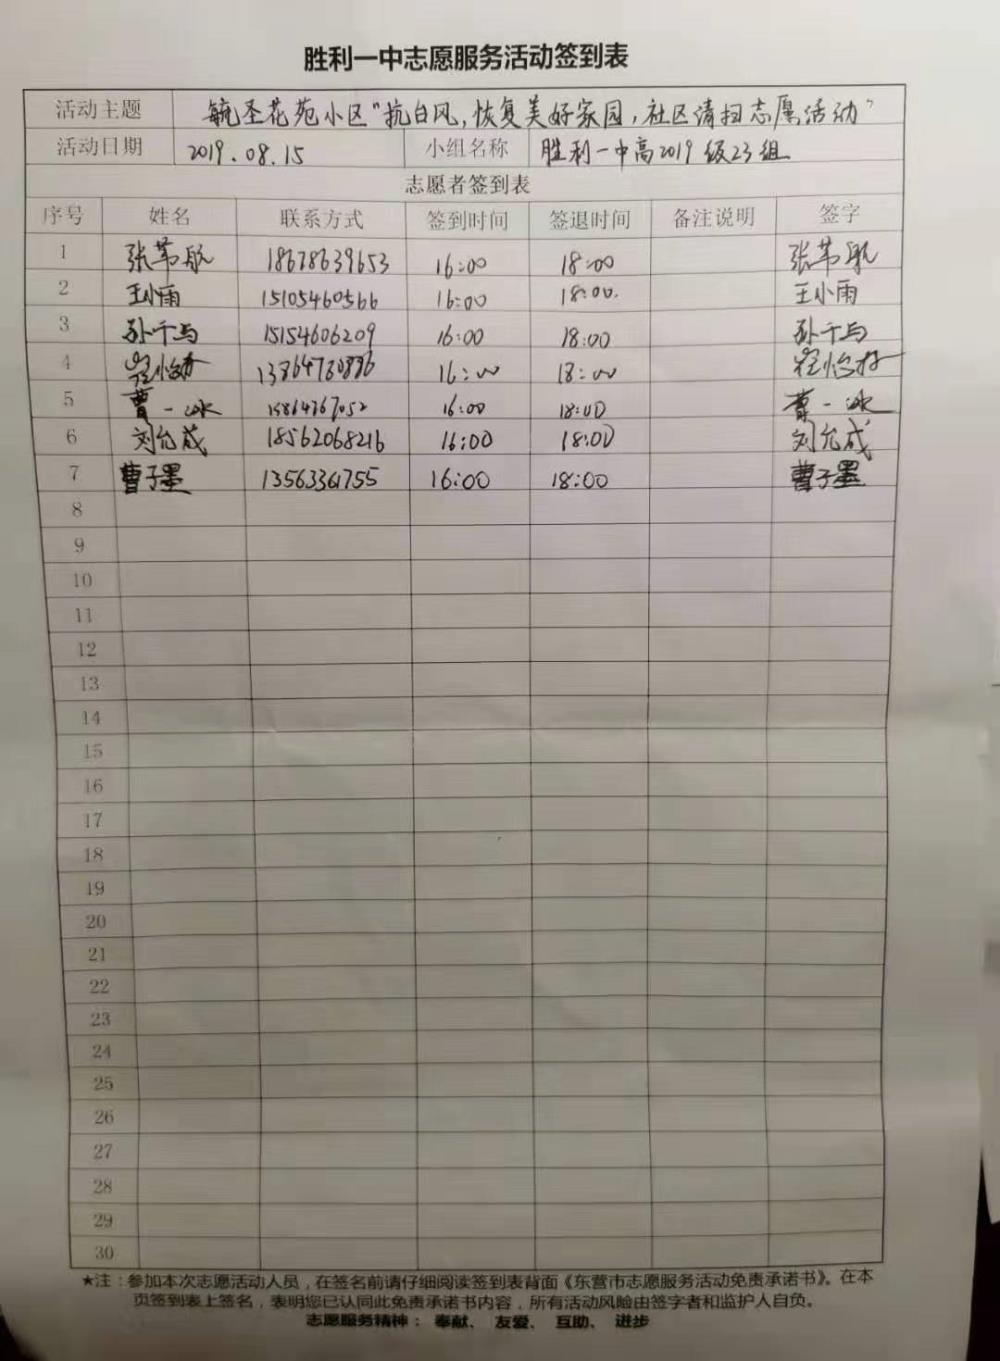 胜利一中志愿服务活动签到表
活动主题 毓圣花苑小区"抗台风,恢复美好家园,社区清扫志愿活动"
活动日期 2019.08.15 小组名称 胜利一中高2019级23组
志愿者签到表
序号 姓名 联系方式 签到时间 签退时间 备注说明 签字
1 张芾航 18678639653 16:00 18:00 张芾航
2 王小雨 15105460566 16:00 18:00. 王小雨
3 孙千与 15154606209 16:00 18:00 孙千与
4 16:00 18:00
5 曹一冰 16:00 18:00 曹一冰
6 刘允成 18562068216 16:00 18:00 刘允成
7 曹子墨 16:00 18:00 曹子墨
8
9
10
11
12
13
14
15
16
17
18
19
20
21
22
23
24
25
26
27
28
29
30
★注:参加本次志愿活动人员,在签名前请仔细阅读签到表背面《东营市志愿服务活动免责承诺书》。在本
页签到表上签名,表明您已认同此免责承诺书内容,所有活动风险由签字者和监护人自负。
志愿服务精神: 奉献、 友爱、 互助、 进步